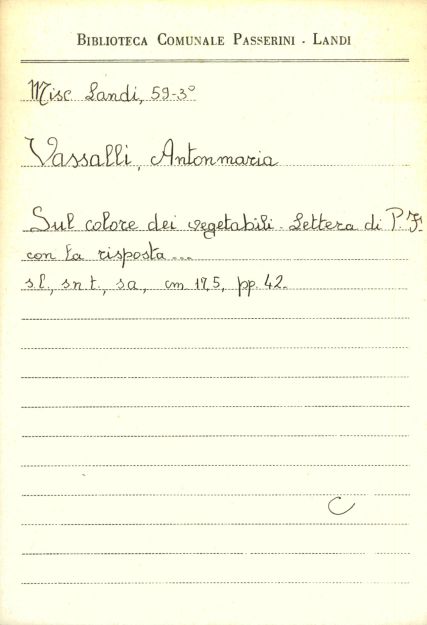 BIBLIOTECA COMUNALE PASSERINI - LANDI
Misc Landi, 59-3°
Vassalli, Antonmaria
Sul colore dei vegetabili. Lettera di P. F.
con la risposta...
s.l., s.n.t., s.a., cm. 17,5, pp. 42.
C